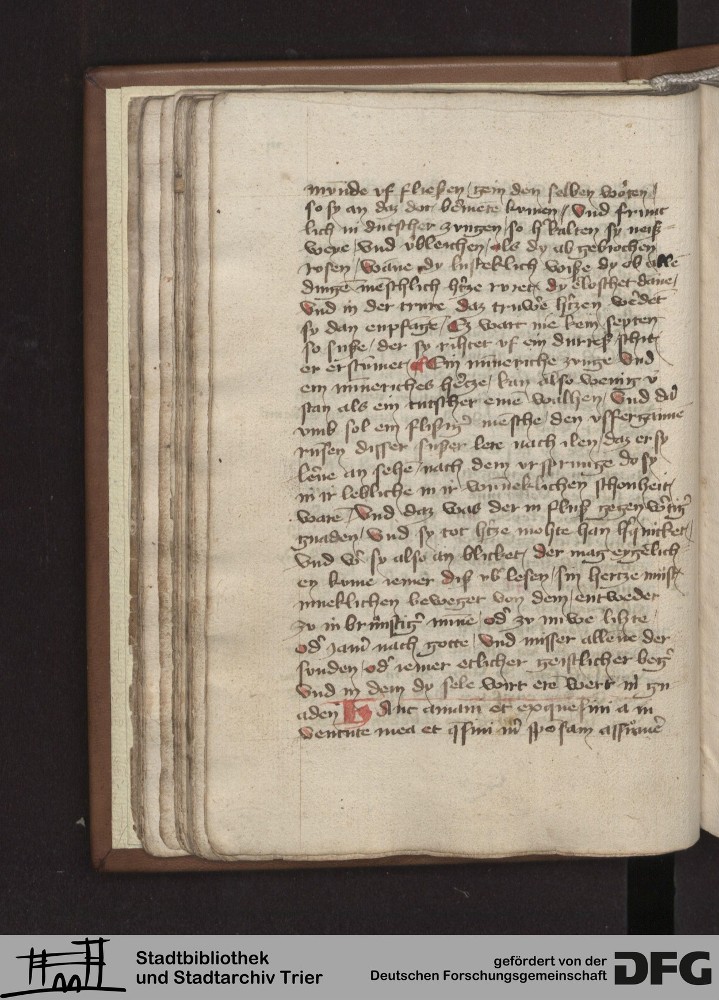 munde vf flieſzen / gein den ſelben worten /
ſo ſy an daz dot bermete kumen / Vnd frunt
lich in dutſcher zungen / ſo kalten ſy
weye / vnd vbleichen / als dy ab gebrochen
roſen / wāne dy luſteklich wiſze dy ob alle
dingē mēſchlich h'tze rueret dy erloſchet dāne /
Vnd in der trure daz truwē h'tzen werdet
ſy dan enpfagē / Ez wart nie kein ſeyten
ſo ſuſze / der ſy rihtet vf ein durreſz ſchit
er erſtūmet / Ein minneriche zunge vnd
ein minneriches hertze / kan alſo wenig v̄
ſtan als ein tutſcher eine walhen / Vnd da
vmb ſol ein fliſzig' mēſche / den vſſergāune
runſen diſſer ſuſzer lere nach ilen / daz er ſy
lerne an ſehe / nach dem vrſprunge do ſy
in ir lebliche in ir wūneklichen ſchonheit
warē / Vnd daz was der in fluſz gegen w'tig'
gnaden / Vnd ſy tot h'tze mohte han erquicket /
Vnd w' ſy alſo an blicket / der mag eygēlich
en kume iemer diſz vb' leſen / ſin hertze muſz
inneklichen beweget von dem / entweder
zu in brunſtig' mīne / od' zu nuwe lihte
od' iam' nach gotte / Vnd miſſe alleue der
ſunden / od' iemer etlicher geiſtlicher beg'
Vnd in dem dy ſele wirt ere wert in gn
aden Hanc amaui et exqueſiui a iu
ventute mea et qſiui m' ſpoſam aſſumē
Stadtbibliothek
und Stadtarchiv Trier
gefördert von der
Deutschen Forschungsgemeinschaft
DFG